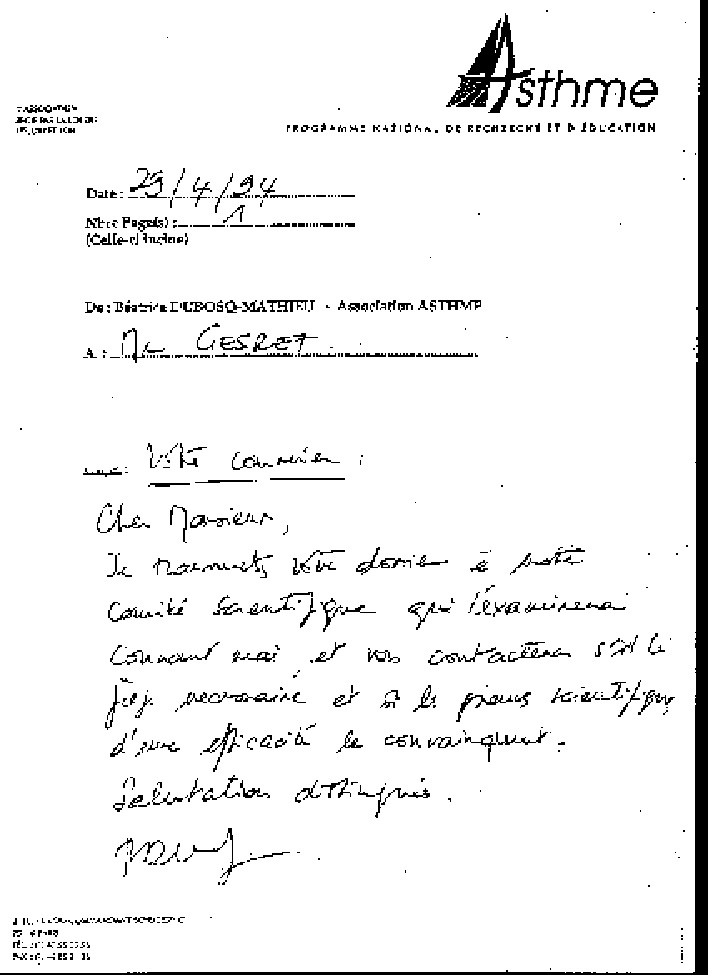 Asthme
PROGRAMME NATIONAL DE RECHERCHE ET D'ÉDUCATION
L'ASSOCIATION
Date : 29/4/94
Nbre Page(s) : 1
(Celle-ci incluse)
De : Béatrice DUBOSQ-MATHIEU - Association ASTHME
A : Mr GESRET
Votre courrier :
Cher Monsieur,
Je transmets votre dossier à notre
Comité Scientifique qui l'examinera
courant mai et vous contactera s'il le
juge nécessaire et si les preuves scientifiques
d'une efficacité le convainquent.
Salutations distinguées.